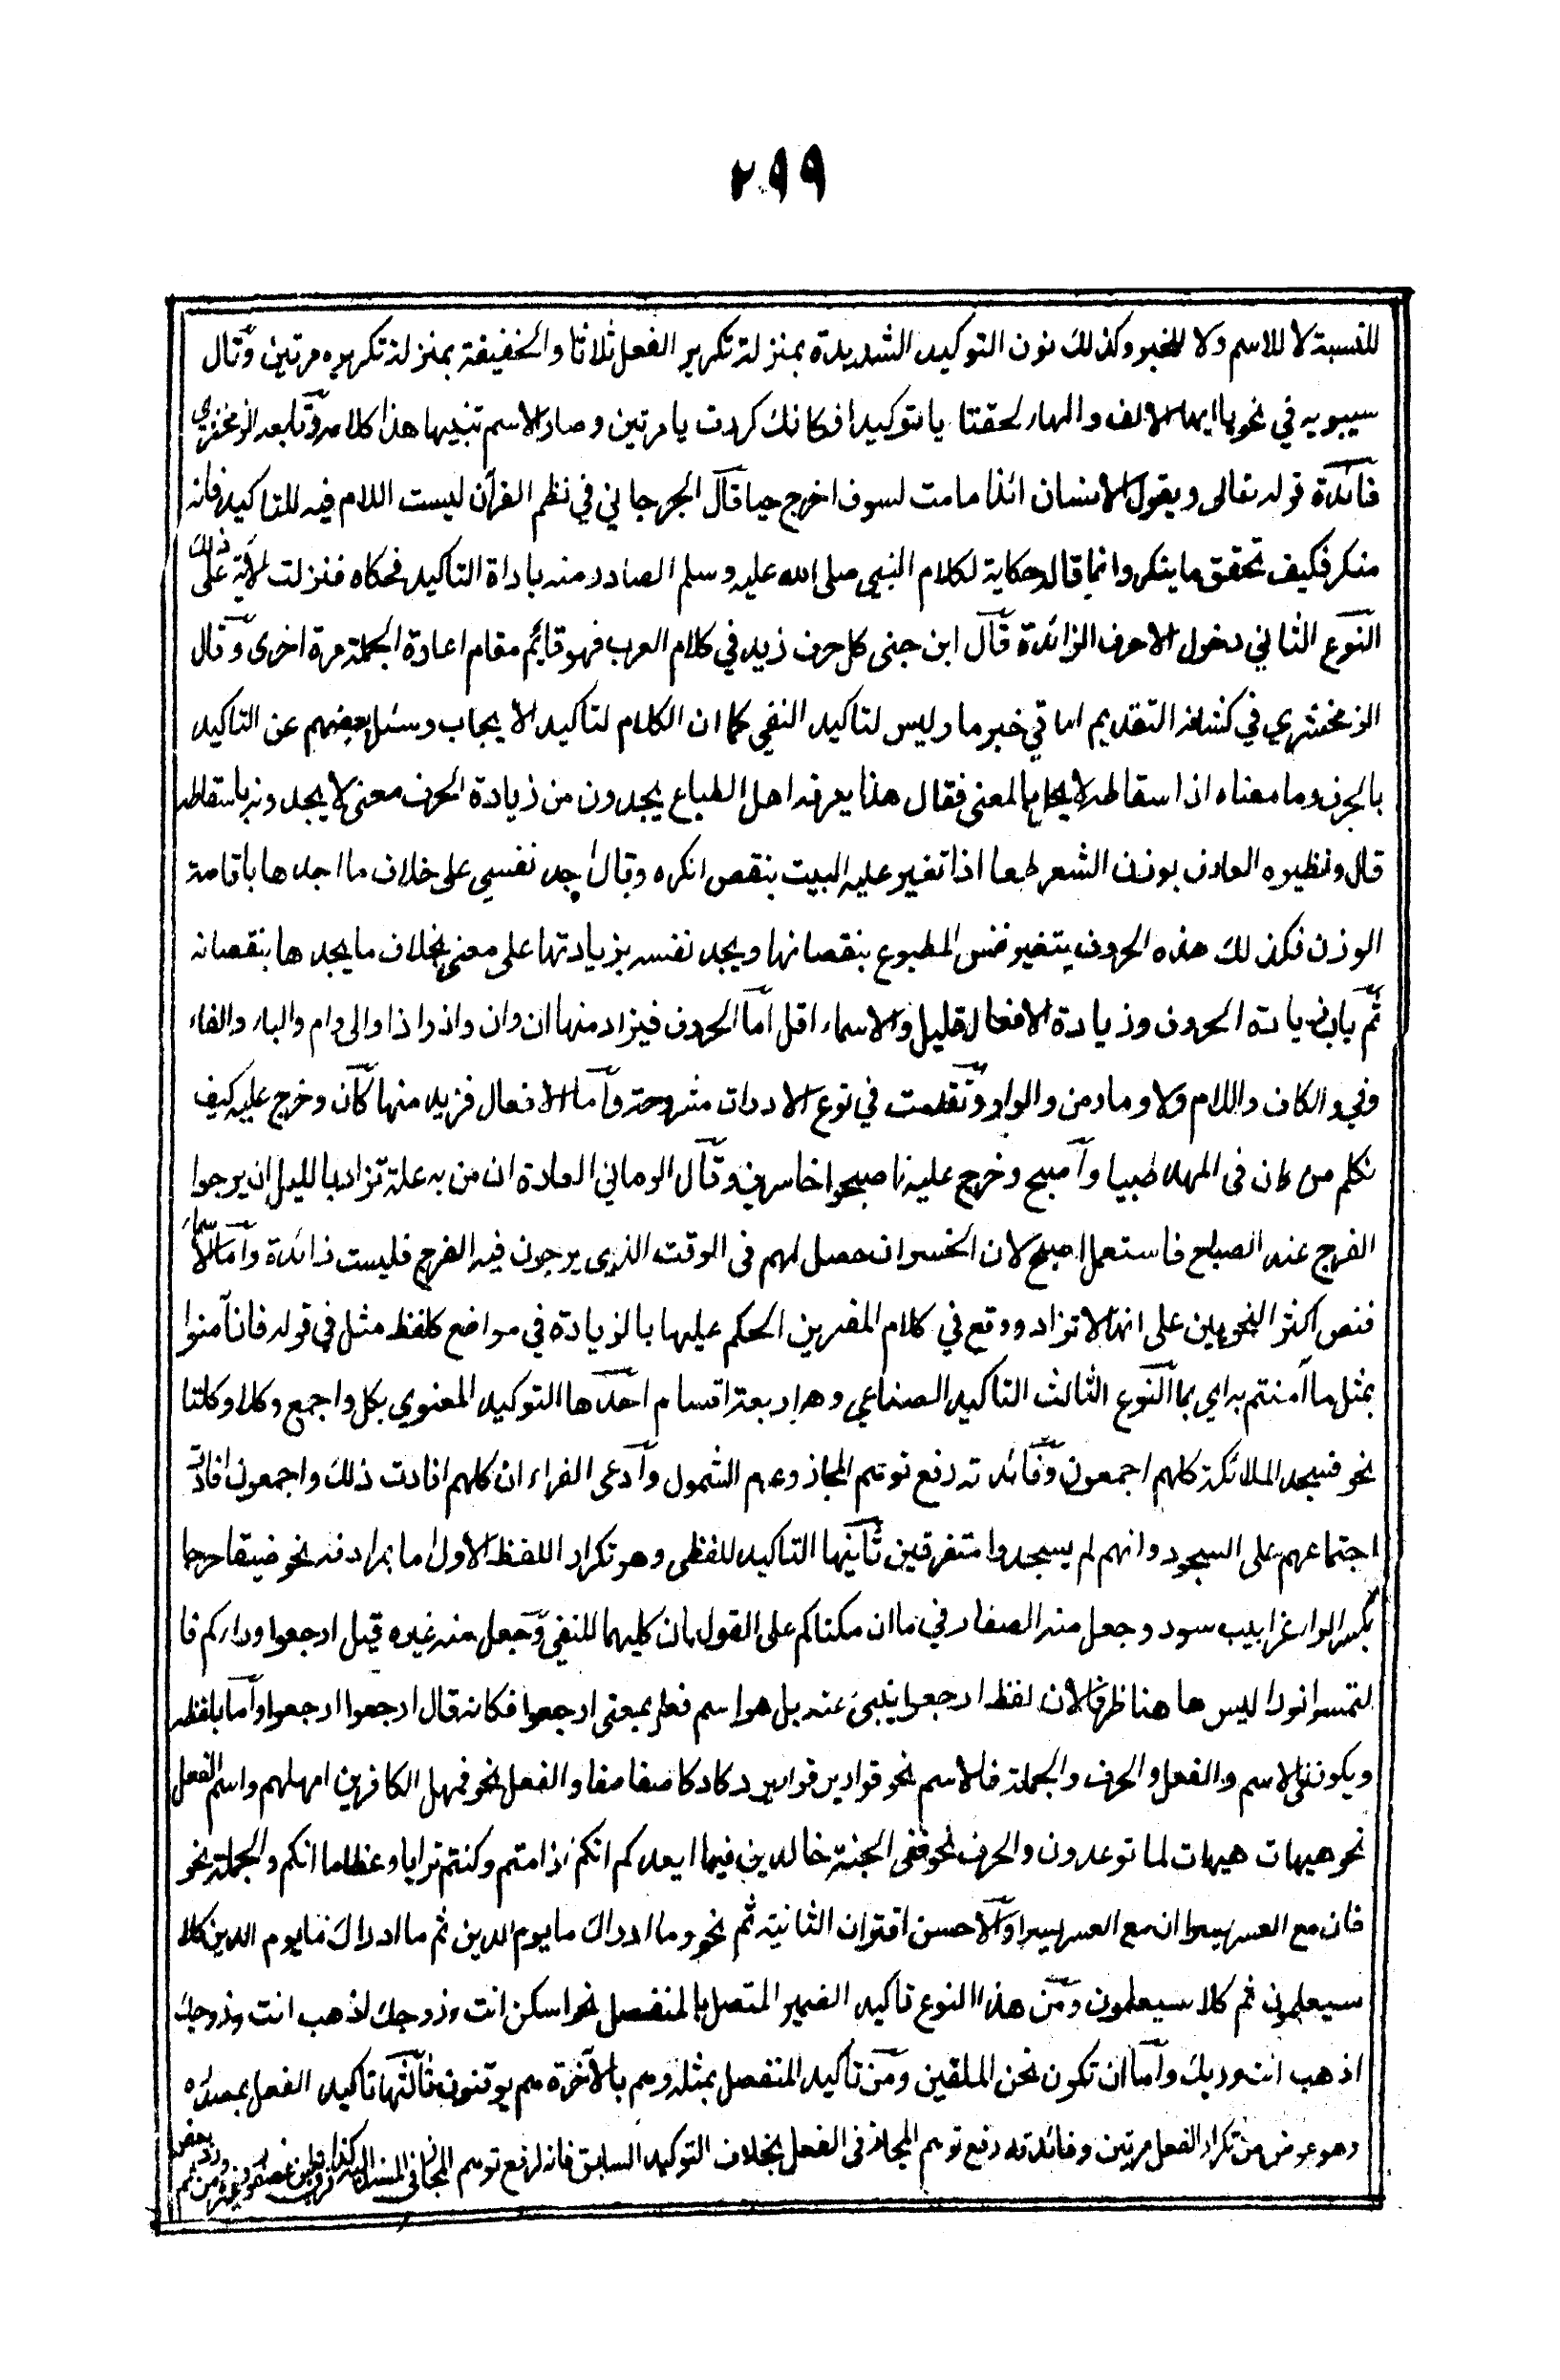 ٢٩٩
للنسبة لا للاسم ولا للخبر وكذلك نون التوكيد الشديدة بمنزلة تكرير الفعل ثلاثا والخفيفة بمنزلة تكريره مرتين وقال
سيبويه في نحو يا ايها الالف والهاء لحقتا يا توكيدا فكانك كررت يا مرتين وصار الاسم تنبيها هذا كلامه وتابعه الزمخشري
فائدة قوله تعالى ويقول الانسان ائذا مامت لسوف اخرج حيا قال الجرجاني في نظم القرآن ليست اللام فيه للتاكيد فانه
منكر فكيف تحقق ما ينكر وانما قاله حكاية لكلام النبي صلى الله عليه وسلم الصادر منه باداة التاكيد فحكاه فنزلت الآية على ذلك
النوع الثاني دخول الاحرف الزائدة قال ابن جنى كل حرف زيد في كلام العرب فهو قائم مقام اعادة الجملة مرة اخرى وقال
الزمخشري في كشافه القديم الباء في خبر ما وليس لتاكيد النفي كما ان الكلام لتاكيد الايجاب وسئل بعضهم عن التاكيد
بالحرف وما معناه اذ اسقاطه لا يخل بالمعنى فقال هذا يعرفه اهل الطباع يجدون من زيادة الحرف معنى لا يجدونه باسقاطه
قال ونظيره العارف بوزن الشعر طبعا اذا تغير عليه البيت بنقص انكره وقال اجد نفسي على خلاف ما اجدها باقامة
الوزن فكذلك هذه الحروف يتغير نفس المطبوع بنقصانها ويجد نفسه بزيادتها على معنى بخلاف ما يجدها بنقصانه
ثم باب زيادة الحروف وزيادة الافعال قليل والاسماء اقل اما الحروف فيزاد منها ان وان واذ واذا والى وام والباء والفاء
وفي والكاف واللام ولا وما ومن والواو وتقدمت في نوع الادوات مشروحة واما الافعال فزيد منها كان وخرج عليه كيف
نكلم من كان فى المهد صبيا واصبح وخرج عليه فاصبحوا خاسرين وقال الرماني العادة ان من به علة تزاد بالليل ان يرجوا
الفرج عند الصباح فاستعمل اصبح لان الخسران حصل لهم فى الوقت الذى يرجون فيه الفرج فليست زائدة واما الاسماء
فنص اكثر النحويين على انها لا تزاد ووقع في كلام المفسرين الحكم عليها بالزيادة في مواضع كلفظ مثل في قوله فان آمنوا
بمثل ما آمنتم به اي بما النوع الثالث التاكيد الصناعي وهو اربعة اقسام احدها التوكيد المعنوي بكل واجمع وكلا وكلتا
نحو فسجد الملائكة كلهم اجمعون وفائدته رفع توهم المجاز وعدم الشمول وادعى الفراء ان كلهم افادت ذلك واجمعون افادت
اجتماعهم على السجود وانهم لم يسجدوا متفرقين ثانيها التاكيد اللفظى وهو تكرار اللفظ الاول اما بمرادفه نحو ضيقا حرجا
بكسر الراء غرابيب سود وجعل منه الصفار في ما ان مكناكم على القول بان كليهما للنفي وجعل منه غيره قيل ارجعوا وراءكم فا
لتمسوا نورا ليس ها هنا ظرفا لان لفظ ارجعوا ينبئ عنه بل هو اسم فعل بمعنى ارجعوا فكانه قال ارجعوا ارجعوا واما بلفظه
ويكون في الاسم والفعل والحرف والجملة فالاسم نحو قوارير قوارير دكا دكا صفا صفا والفعل نحو فمهل الكافرين امهلهم واسم الفعل
نحو هيهات هيهات لما توعدون والحرف نحو ففى الجنة خالدين فيها ايعدكم انكم اذا متم وكنتم ترابا وعظاما انكم والجملة نحو
فان مع العسر يسرا ان مع العسر يسرا والاحسن اقتران الثانية ثم نحو وما ادراك ما يوم الدين ثم ما ادراك ما يوم الدين كلا
سيعلمون ثم كلا سيعلمون ومن هذا النوع تاكيد الضمير المتصل بالمنفصل نحو اسكن انت وزوجك اذهب انت وزوجك
اذهب انت وربك واما ان تكون نحن الملقين ومن تاكيد المنفصل بمثله وهم بالآخرة هم يوقنون ثالثها تاكيد الفعل بمصدره
وهو عوض من تكرار الفعل مرتين وفائدته رفع توهم المجاز فى الفعل بخلاف التوكيد السابق فانه لرفع توهم المجاز في المسند اليه كذا فرق به ابن عصفور وغيره ومن ثم رد بعض